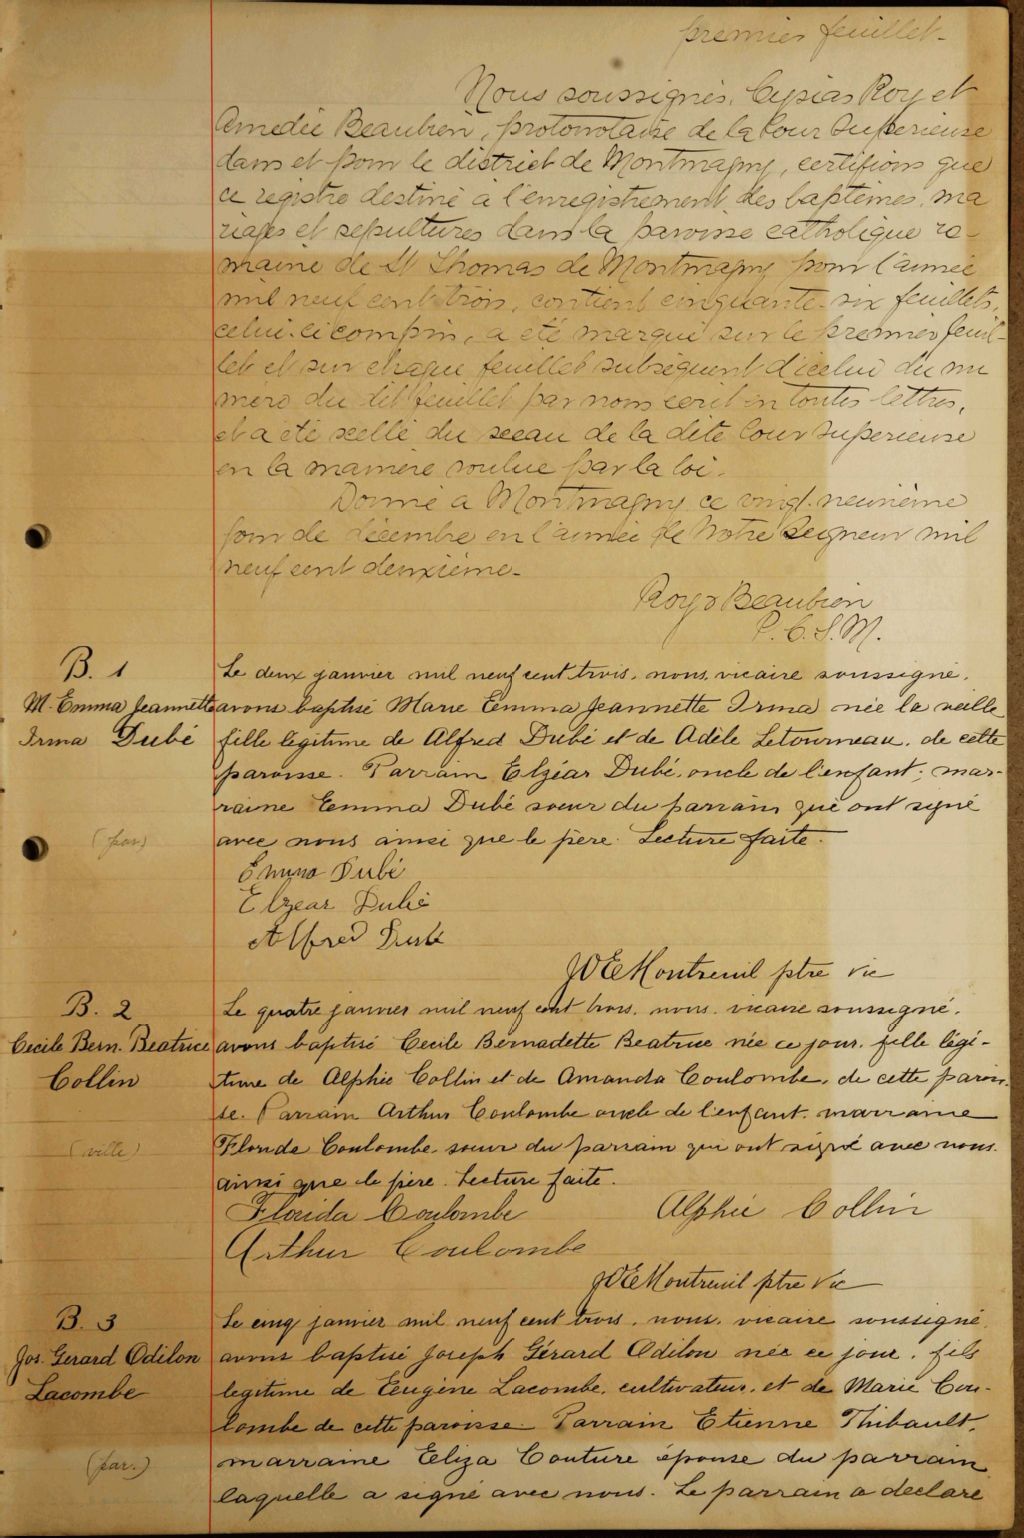 premier feuillet-
Nous soussignés, Cypias Roy et
Amedée Beaubien, protonotaire de la Cour Superieuse
dans et pour le district de Montmagny, certifions que
ce registre destiné a l'enregistrement des baptèmes, ma
riages et sepultures dans la paroisse catholique ro-
maine de St Thomas de Montmagny pour l'année
mil neuf cent trois, contient cinquante-six feuillets,
celui-ci compris, a été marqué sur le premier feuil-
let et sur chaque feuillet subséquent d'icelui du nu
mero du dit feuillet par nous ecrit en toutes lettres,
et a été scellé du sceau de la dite Cour Superieuse
en la maniere voulue par la loi.
Donné a Montmagny ce vingt-neuvième
jour de décembre en l'année de Notre Seigneur mil
neuf cent deuxième-
Roy & Beaubien
P. C. S. M.
B. 1
M. Emma Jeannette
Irma Dubé
(par)
Le deux janvier mil neuf cent trois, nous, vicaire soussigné,
avons baptisé Marie Emma Jeannette Irma née la veille
fille legitime de Alfred Dubé et de Adèle Letourneau, de cette
paroisse. Parrain Elzéar Dubé, oncle de l'enfant; mar-
raine Emma Dubé soeur du parrain qui ont signé
avec nous ainsi que le père. Lecture faite.
Emma Dubé
Elzear Dubé
Alfred Dubé
JOEMontreuil ptre vic
B. 2
Cecile Bern. Beatrice
Collin
(ville)
Le quatre janvier mil neuf cent trois, nous, vicaire soussigné,
avons baptisé Cecile Bernadette Beatrice née ce jour, fille légi-
time de Alphée Collin et de Amanda Coulombe, de cette parois-
se. Parrain Arthur Coulombe oncle de l'enfant, marraine
Florida Coulombe, soeur du parrain qui ont signé avec nous
ainsi que le père. Lecture faite.
Florida Coulombe Alphée Collin
Arthur Coulombe
JOEMontreuil ptre Vic
B. 3
Jos. Gerard Odilon
Lacombe
(par.)
Le cinq janvier mil neuf cent trois, nous, vicaire soussigné,
avons baptisé Joseph Gérard Odilon née ce jour, fils
legitime de Eugène Lacombe, cultivateur, et de Marie Cou-
lombe de cette paroisse. Parrain Etienne Thibault,
marraine Eliza Couture épouse du parrain
laquelle a signé avec nous. Le parrain a declaré